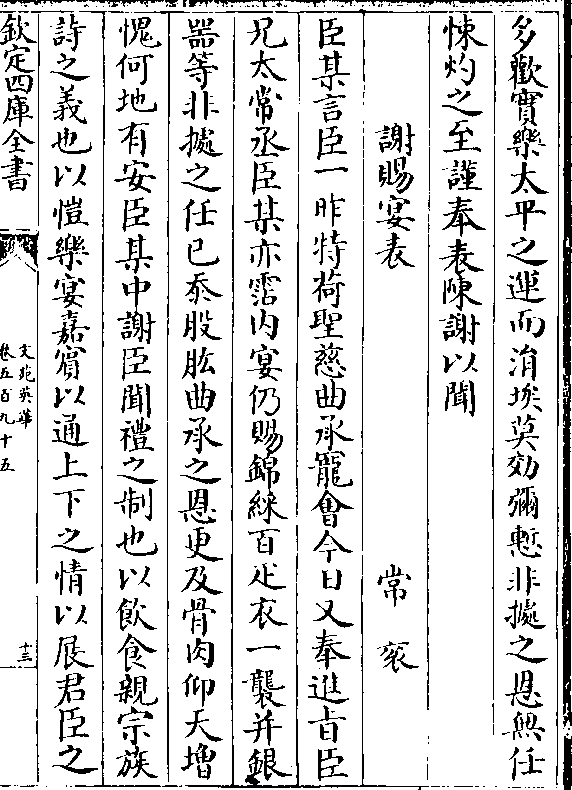 多歡實樂太平之運而涓埃莫効彌慙非據之恩無任
悚灼之至謹奉表陳謝以聞
謝賜宴表 常衮
臣某言臣一昨特荷聖慈曲承寵會今日又奉進旨臣
兄太常丞臣某亦霑内宴仍賜錦綵百疋衣一襲并銀
器等非據之任已忝股肱曲承之恩更及骨肉仰天增
愧何地有安臣某中謝臣聞禮之制也以飲食親宗族
詩之義也以愷樂宴嘉賓以通上下之情以展君臣之
欽定四庫全書
文苑英華
卷五百九十五
十三